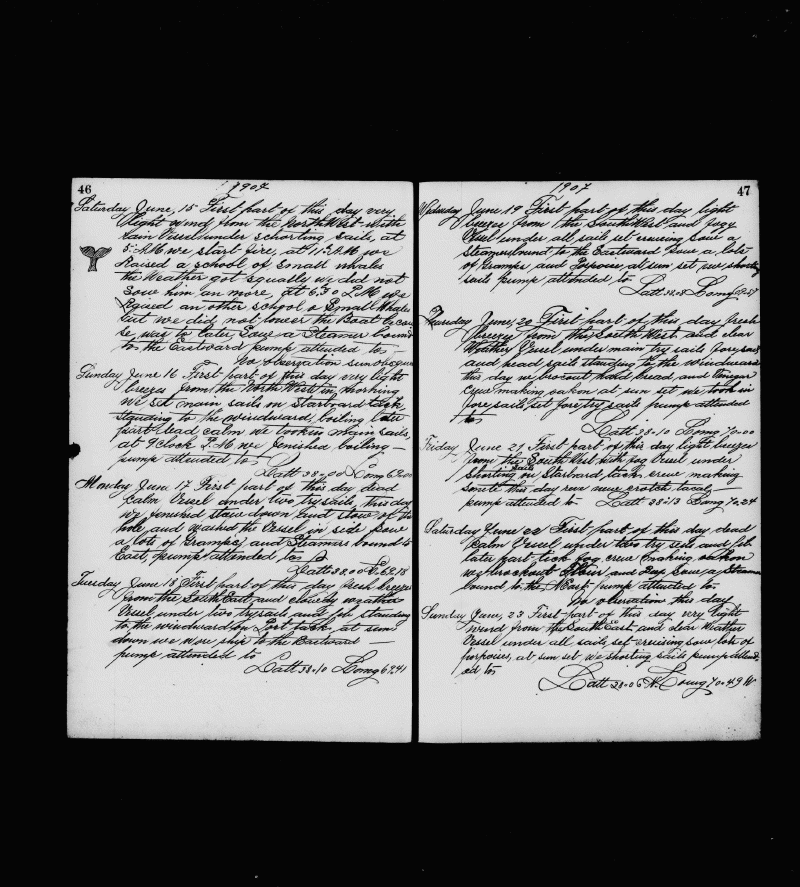 46
1907
Saturday June, 15 First part of this day very
light wind from the North West with
rain Vessel under schorting sails, at
5: A.M. we start fire, at 11: A.M. we
Raised a school of small whales
the Weather got squally we did not
saw him an more, at 6.30 P.M. we
Raised an other school a Small Whales
but we did not lower the Boat becau
se was to later, saw a Steamer bound
to the Eastward pump attended to
No observation
Sunday June 16 First part of this day very light
breeze from the North West in morning
we set main sails on Starbord tack
standing to the windward, boiling later
part dead calm we tooked main sails,
at 9 Clock P.M. we finished boiling
pump attended to
Latt 38-00 Long
Monday June 17 First part of this day dead
calm Vessel under two try sails, this day
we finished stow down
hole, and washed the Vessel in side saw
a lots of Gramps, and Steamers bound to
East, pump attended to
Latt 38,00
Tuesday June 18 First part of this day fresh breeze
from the South East and cloudy weather
Vessel under two trysails and jib standing
to the windward on Port tack, at sun
down we wore ship to the Eastward
pump attended to
Latt 38-10 Long 69,41
1907
47
Wednesday June 19 First part of this day light
breeze from the South West and foggy
Vessel under all sails set cruising saw a
Steamer bound to the Eastward saw a lots
of Gramps and Porpoise, at sun set we shorting
sails pump attended to
Latt 38,08 Long
Thursday June, 20 First part of this day fresh
breeze from the South West, and clear
Weather Vessel under main try sails foresail
and head sails standing to the windward
this day we brocout hard bread, and Vinegar
Crew making at sun set we took in
fore sails, set fore try sails pump attended
to
Latt 38-10 Long 70-00
Friday June 21 First part of this day light breeze
from the South West with fog Vessel under
shorting sails on Starbord tack, crew making
this day new
pump attended to Latt 38-13 Long 70-24
Saturday June 22 First part of this day dead
calm Vessel under two try sails and jib
later part fog crew making
we brockout Flour and saw a Steamer
bound to the N East pump attended to
No observation this day
Sunday June, 23 First part of this day very light
wind from the South East and clear Weather
Vessel under all sails set cruising saw lots of
porpoises, at sun set we shorting sails pump attend
ed to
Latt 38-06 N. Long 70-49 W